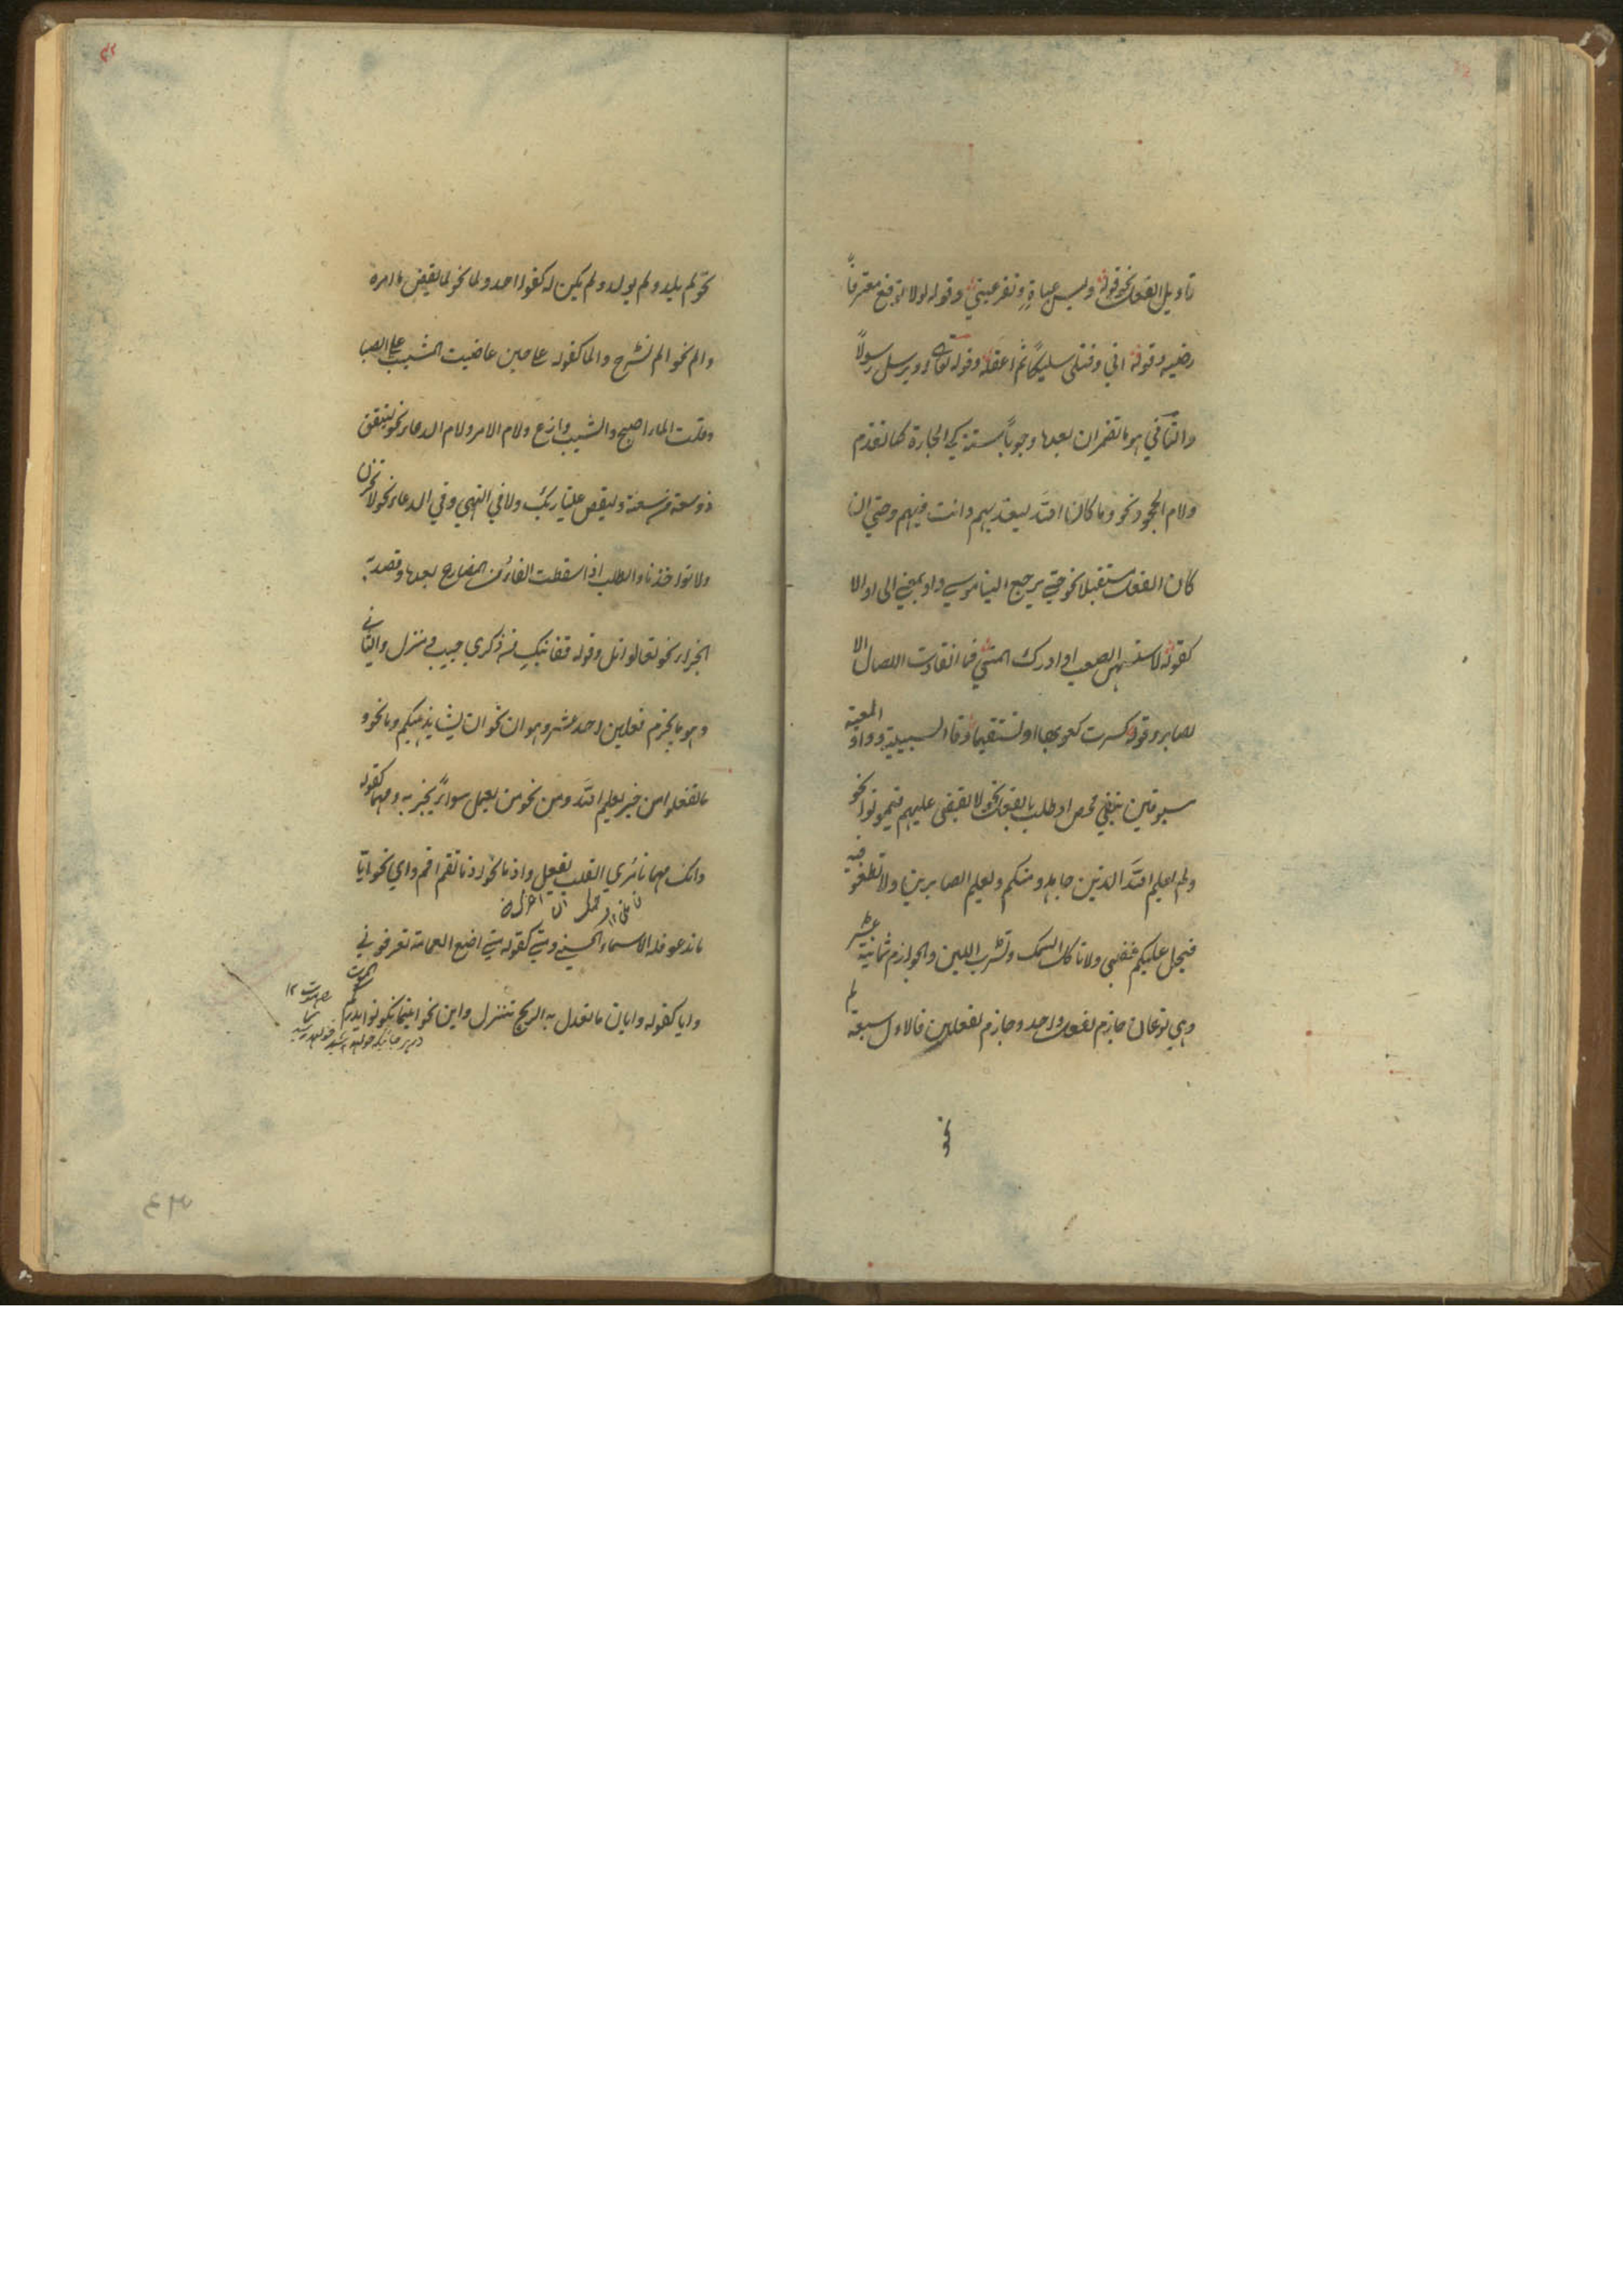 تاويل الفعل نحو قوله ولبس عباءة وتقر عيني وقوله لولا توقع معتر فا
رضيه وقوله اني وقتلي سليكا ثم اعقله وقوله تعالى او يرسل رسولا
والثاني هو ما تضمر ان بعدها وجوبا ستة كي الجارة كما تقدم
ولام الجحود نحو وما كان الله ليعذبهم وانت فيهم وحتى ان
كان الفعل مستقبلا نحو حتى يرجع الينا موسى واو بمعنى الى او الا
كقوله لاستسهلن الصعب او ادرك المنى فما انقادت الامال الا
لصابر وقوله كسرت كعوبها او تستقيما وفا السببية وواو المعية
مسبوقين بنفي محض او طلب بالفعل نحو لا يقضى عليهم فيموتوا نحو
ولم يعلم الله الذين جاهدوا منكم ويعلم الصابرين ولا تطغوا فيه
فيحل عليكم غضبي ولا تاكل السمك وتشرب اللبن والجوازم ثمانية عشر
وهي نوعان جازم لفعل واحد وجازم لفعلين فالاول سبعة لم
نحو
نحو لم يلد ولم يولد ولم يكن له كفوا احد ولما نحو لما يقض ما امره
والم نحو الم نشرح والما كقوله على حين عاتبت المشيب على الصبا
وقلت الما اصح والشيب وازع ولام الامر ولام الدعاء نحو لينفق
ذو سعة من سعته وليقض علينا ربك ولا في النهي وفي الدعاء نحو لا تحزن
ولا تواخذنا والطلب اذا سقطت الفاء من المضارع بعدها وقصد به
الجزاء نحو تعالوا اتل وقوله قفا نبك من ذكرى حبيب ومنزل والثاني
وهو ما يجزم فعلين احد عشر وهو ان نحو ان يشا يذهبكم وما نحو و
ما تفعلوا من خير يعلمه الله ومن نحو من يعمل سوءا يجز به ومهما كقوله
وانك مهما تامري القلب يفعل واذ ما نحو اذ ما تقم اقم واي نحو ايا
ما تدعو فله الاسماء الحسنى ومتى كقوله متى اضع العمامة تعرفوني
وايا كقوله وايان ما تعدل به الريح تنزل واين نحو اينما تكونوا يدرككم الموت